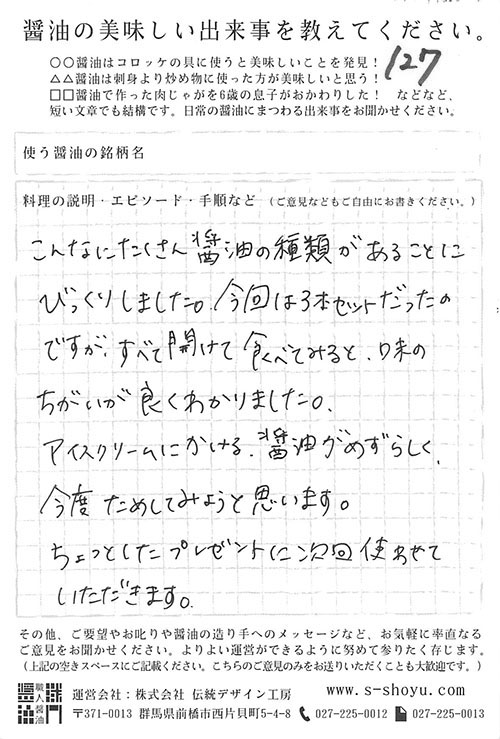 醤油の美味しい出来事を教えてください。
○○醤油はコロッケの具に使うと美味しいことを発見！
127
△△醤油は刺身より炒め物に使った方が美味しいと思う！
□□醤油で作った肉じゃがを6歳の息子がおかわりした！ などなど、
短い文章でも結構です。日常の醤油にまつわる出来事をお聞かせください。
使う醤油の銘柄名
料理の説明・エピソード・手順など （ご意見などもご自由にお書きください。）
こんなにたくさん醤油の種類があることに
びっくりしました。今回は3本セットだったの
ですが、すべて開けて食べてみると、味の
ちがいが良くわかりました。
アイスクリームにかける、醤油がめずらしく、
今度ためしてみようと思います。
ちょっとしたプレゼントに次回使わせて
いただきます。
その他、ご要望やお叱りや醤油の造り手へのメッセージなど、お気軽に率直なる
ご意見をお聞かせください。よりよい運営ができるように努めて参りたく存じます。
（上記の空きスペースにご記載ください。こちらのご意見のみをお送りいただくことも大歓迎です。）
職人醤油
運営会社：株式会社 伝統デザイン工房 www.s-shoyu.com
〒371-0013 群馬県前橋市西片貝町5-4-8 027-225-0012 027-225-0013